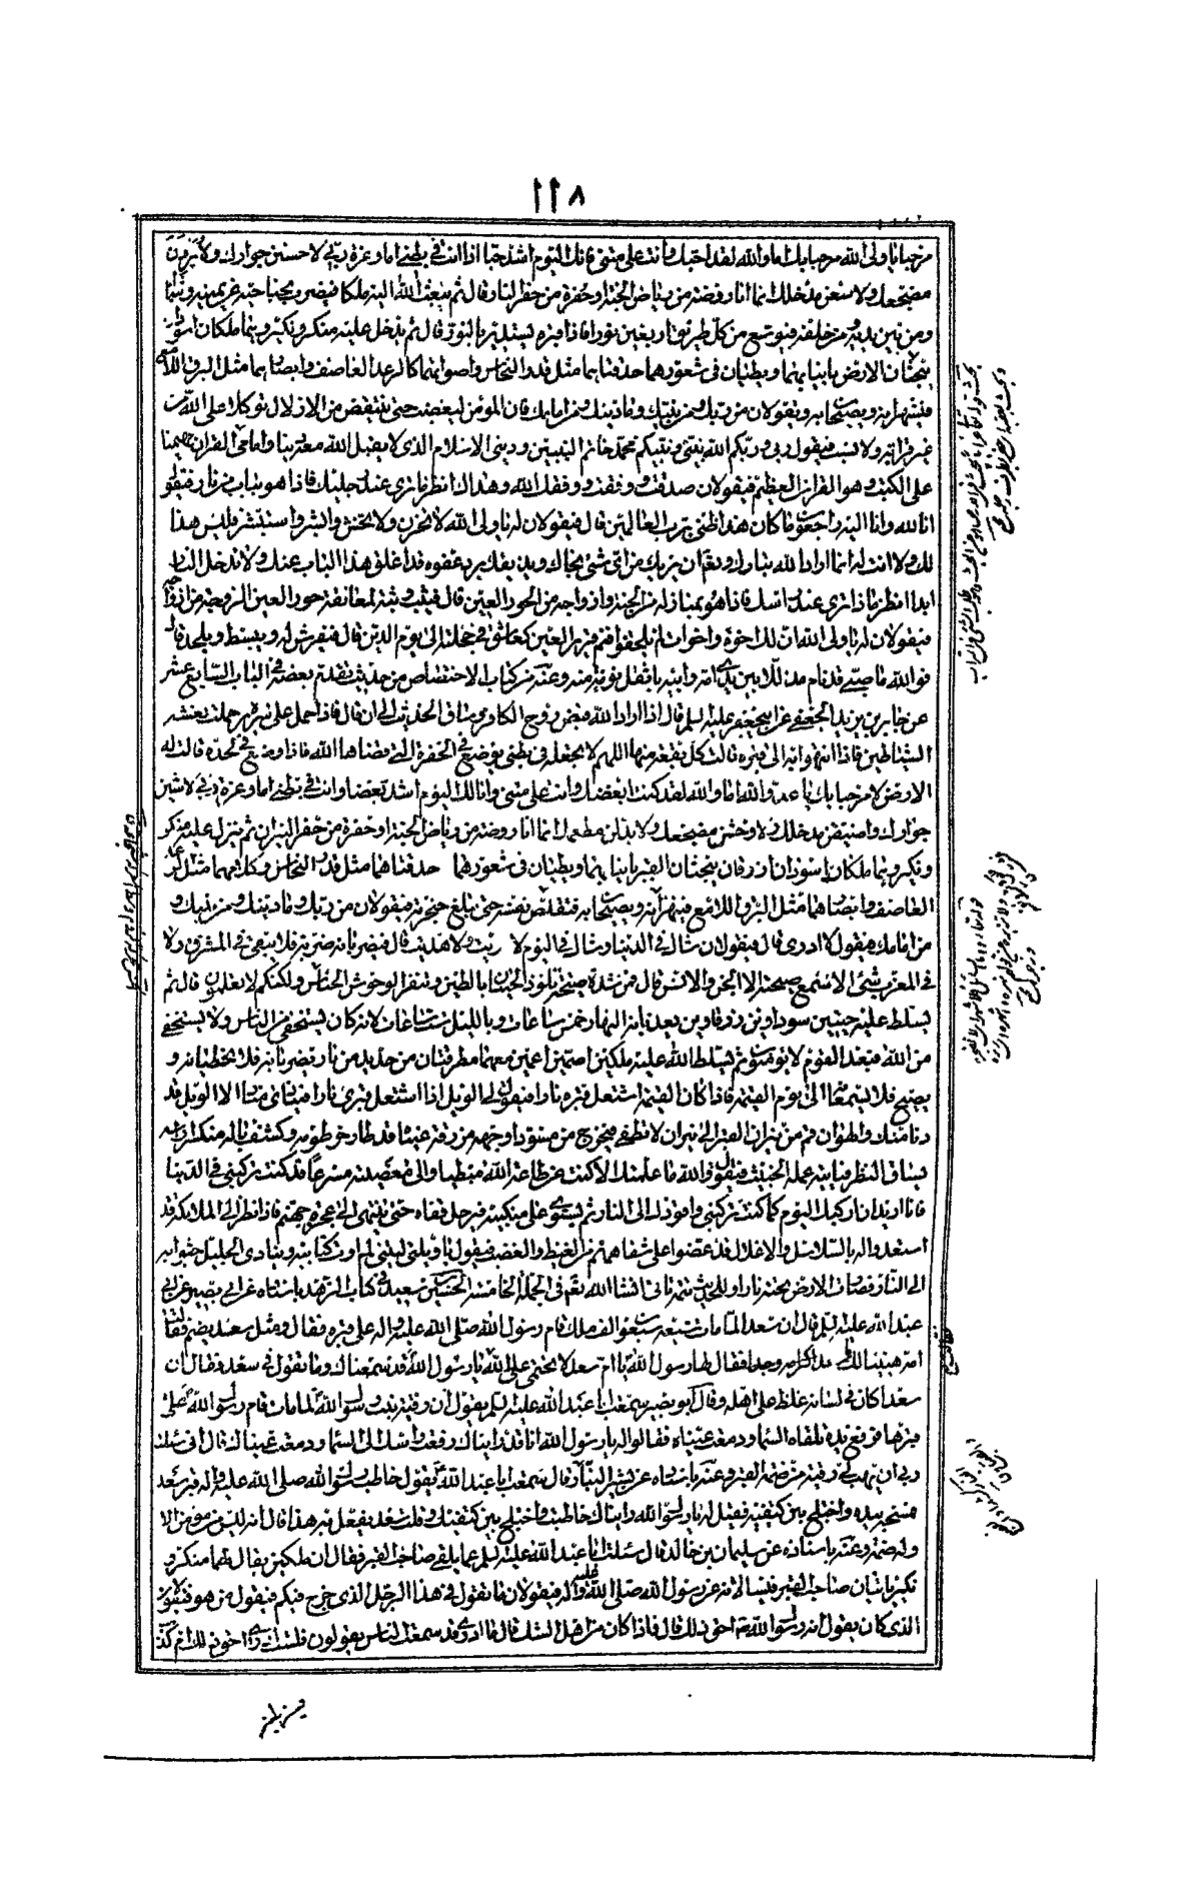 ١١٨
مرحبا يا ولى الله مرحبا بك اما والله لقد احبك وانت على متنى فانك اليوم اشد حبا اذا انت فى بطنى اما وعزة ربى لاحسنن جوارك ولابردن
مضجعك ولاوسعن مدخلك انما انا روضة من رياض الجنة او حفرة من حفر النار قال ثم يبعث الله اليه ملكا فيضرب بجناحيه عن يمينه وشماله
ومن بين يديه ومن خلفه فيوسع من كل طريق اربعين نورا فاذا قبره مستدير بالنور قال ثم يدخل عليه منكر ونكير وهما ملكان اسودان
يبحثان الارض بانيابهما ويطئان فى شعورهما حدقتاهما مثل قدر النحاس واصواتهما كالرعد العاصف وابصارهما مثل البرق اللامع
فينتهرانه ويصيحان به ويقولان من ربك ومن نبيك وما دينك ومن امامك فان المؤمن ليغضب حتى ينتفض من الادلال توكلا على الله من
غير قرابة ولا نسب فيقول ربى وربكم الله ونبيى ونبيكم محمد خاتم النبيين ودينى الاسلام الذى لا يقبل الله معه دينا وامامى القران مهيمنا
على الكتب وهو القران العظيم فيقولان صدقت ووفقت وفقك الله وهداك انظر ما ترى عند رجليك فاذا هو بباب من نار فيقول
انا لله وانا اليه راجعون ما كان هذا ظنى برب العالمين قال فيقولان له يا ولى الله لا تحزن ولا تخش وابشر واستبشر فليس هذا
لك ولا انت له انما اراد الله تبارك وتعالى ان يريك من اى شئ نجاك ويذيقك برد عفوه قد اغلق هذا الباب عنك ولا تدخل النار
ابدا انظر ما ذا ترى عند راسك فاذا هو بمنازله من الجنة وازواجه من الحور العين قال فيثب وثبة لمعانقة حور العين الزوجة من ازواجه
فيقولان له يا ولى الله ان لك اخوة واخوات لم يلحقوا فنم قرير العين كعاشق فى حجلته الى يوم الدين قال فيفرش له ويبسط ويلحد قال
فو الله ما صبى قد نام مدللا بين يدى امه وابيه باثقل نومة منه وعنه من كتاب الاختصاص من حديث تقدم بعضه فى الباب السابع عشر
عن جابر بن يزيد الجعفى عن ابى جعفر عليه السلم قال اذا اراد الله قبض روح الكافر وساق الحديث الى ان قال فاذا حمل على سريره حملت نعشه
الشياطين فاذا انتهوا به الى قبره قالت كل بقعة منها اللهم لا تجعله فى بطنى حتى يوضع فى الحفرة التى قضاها الله فاذا وضع فى لحده قالت له
الارض لا مرحبا بك يا عدو الله اما والله لقد كنت ابغضك وانت على متنى وانا لك اليوم اشد بغضا وانت فى بطنى اما وعزة ربى لاسيئن
جوارك ولاضيقن مدخلك ولاوحشن مضجعك ولابدلن مطعمك انما انا روضة من رياض الجنة او حفرة من حفر النيران ثم ينزل عليه منكر
ونكير وهما ملكان اسودان ازرقان يبحثان القبر بانيابهما ويطئان فى شعورهما حدقتاهما مثل قدر النحاس وكلامهما مثل الرعد
العاصف وابصارهما مثل البرق اللامع فينتهرانه ويصيحان به فتقلص نفسه حتى تبلغ حنجرته فيقولان من ربك وما دينك ومن نبيك و
من امامك فيقول لا ادرى قال فيقولان شاك فى الدنيا وشاك فى اليوم لا دريت ولا هديت قال فيضربانه ضربة فلا يبقى فى المشرق ولا
فى المغرب شئ الا سمع صيحته الا الجن والانس قال فمن شدة صيحته يلوذ الحيتان بالطين وتنفر الوحوش الخياس ولكنكم لا تعلمون قال ثم
يسلط عليه حيتين سوداوين زرقاوين يعذبانه بالنهار خمس ساعات وبالليل ست ساعات لانه كان يستخفى من الناس ولا يستخفى
من الله فبعدا لقوم لا يؤمنون ثم يسلط الله عليه ملكين اصمين اعميين معهما مطرقتان من حديد من نار يضربانه فلا يخطيانه و
يصيح فلا يسمعانه الى يوم القيمة فاذا كان القيمة اشتعل قبره نارا فيقول لى الويل اذا اشتعل قبرى نارا فينادى مناد الا الويل قد
دنا منك والهوان قم من نيران القبر الى نيران لا تطفى فيخرج من قبره مسودا وجهه مزرقة عيناه قد طال خرطومه وكشف باله منكسا راسه
يسارق النظر فياتيه عمله الخبيث فيقول والله ما علمتك الا كنت عن طاعة الله مبطيا والى معصيته مسرعا قد كنت تركبنى فى الدنيا
فانا اريد ان اركبك اليوم كما كنت تركبنى واقودك الى النار ثم يستوى على منكبيه فيرحل قفاه حتى ينتهى الى عجزة جهنم فاذا نظر الى الملئكة قد
استعدوا له بالسلاسل والاغلال قد عضوا على شفاههم من الغيظ والغضب فيقول يا ويلتى ليتنى لم اوت كتابيه وينادى الجليل جيئوا به
الى النار فصارت الارض تحته نارا وللحديث تتمة تاتى انشاء الله تعم فى الجملة الخامسة الحسين بن سعيد فى كتاب الزهد باسناده عن ابى بصير عن ابى
عبد الله عليه السلم قال ان سعد لما مات شيعه سبعون الف ملك فقام رسول الله صلى الله عليه واله على قبره فقال ومثل سعد يضم فقالت
امه هنيئا لك يا سعد وكرامة فقال لها رسول الله يا ام سعد لا تحتمى على الله فقالت يا رسول الله قد سمعناك وما تقول فى سعد فقال ان
سعدا كان فى لسانه غلظ على اهله وقال ابو بصير سمعت ابا عبد الله عليه السلم يقول ان رقية بنت رسول الله لما ماتت قام رسول الله ص على
قبرها فرفع يده تلقاء السماء ودمعت عيناه فقالوا له يا رسول الله انا قد رايناك رفعت راسك الى السماء ودمعت عيناك فقال انى سئلت
ربى ان يهب لى رقية من ضمة القبر وعنه باسناده عن بشير النبال قال سمعت ابا عبد الله ع يقول خاطب رسول الله صلى الله عليه واله قبر سعد
فمسحه بيده واختلج بين كتفيه فقيل له يا رسول الله رايناك خاطبت واختلج بين كتفيك وقلت سعد يفعل به هذا فقال انه ليس من مؤمن الا
وله ضمة وعنه باسناده عن سليمان بن خالد قال سئلت ابا عبد الله عليه السلم عما يلقى صاحب القبر فقال ان ملكين يقال لهما منكر و
نكير ياتيان صاحب القبر فيسالانه عن رسول الله صلى الله عليه واله فيقولان ما تقول فى هذا الرجل الذى خرج فيكم فيقول من هو فيقولان
الذى كان يقول انه رسول الله احق ذلك قال فاذا كان من اهل الشك قال ما ادرى قد سمعت الناس يقولون فلست ادرى احق ذلك ام كذب